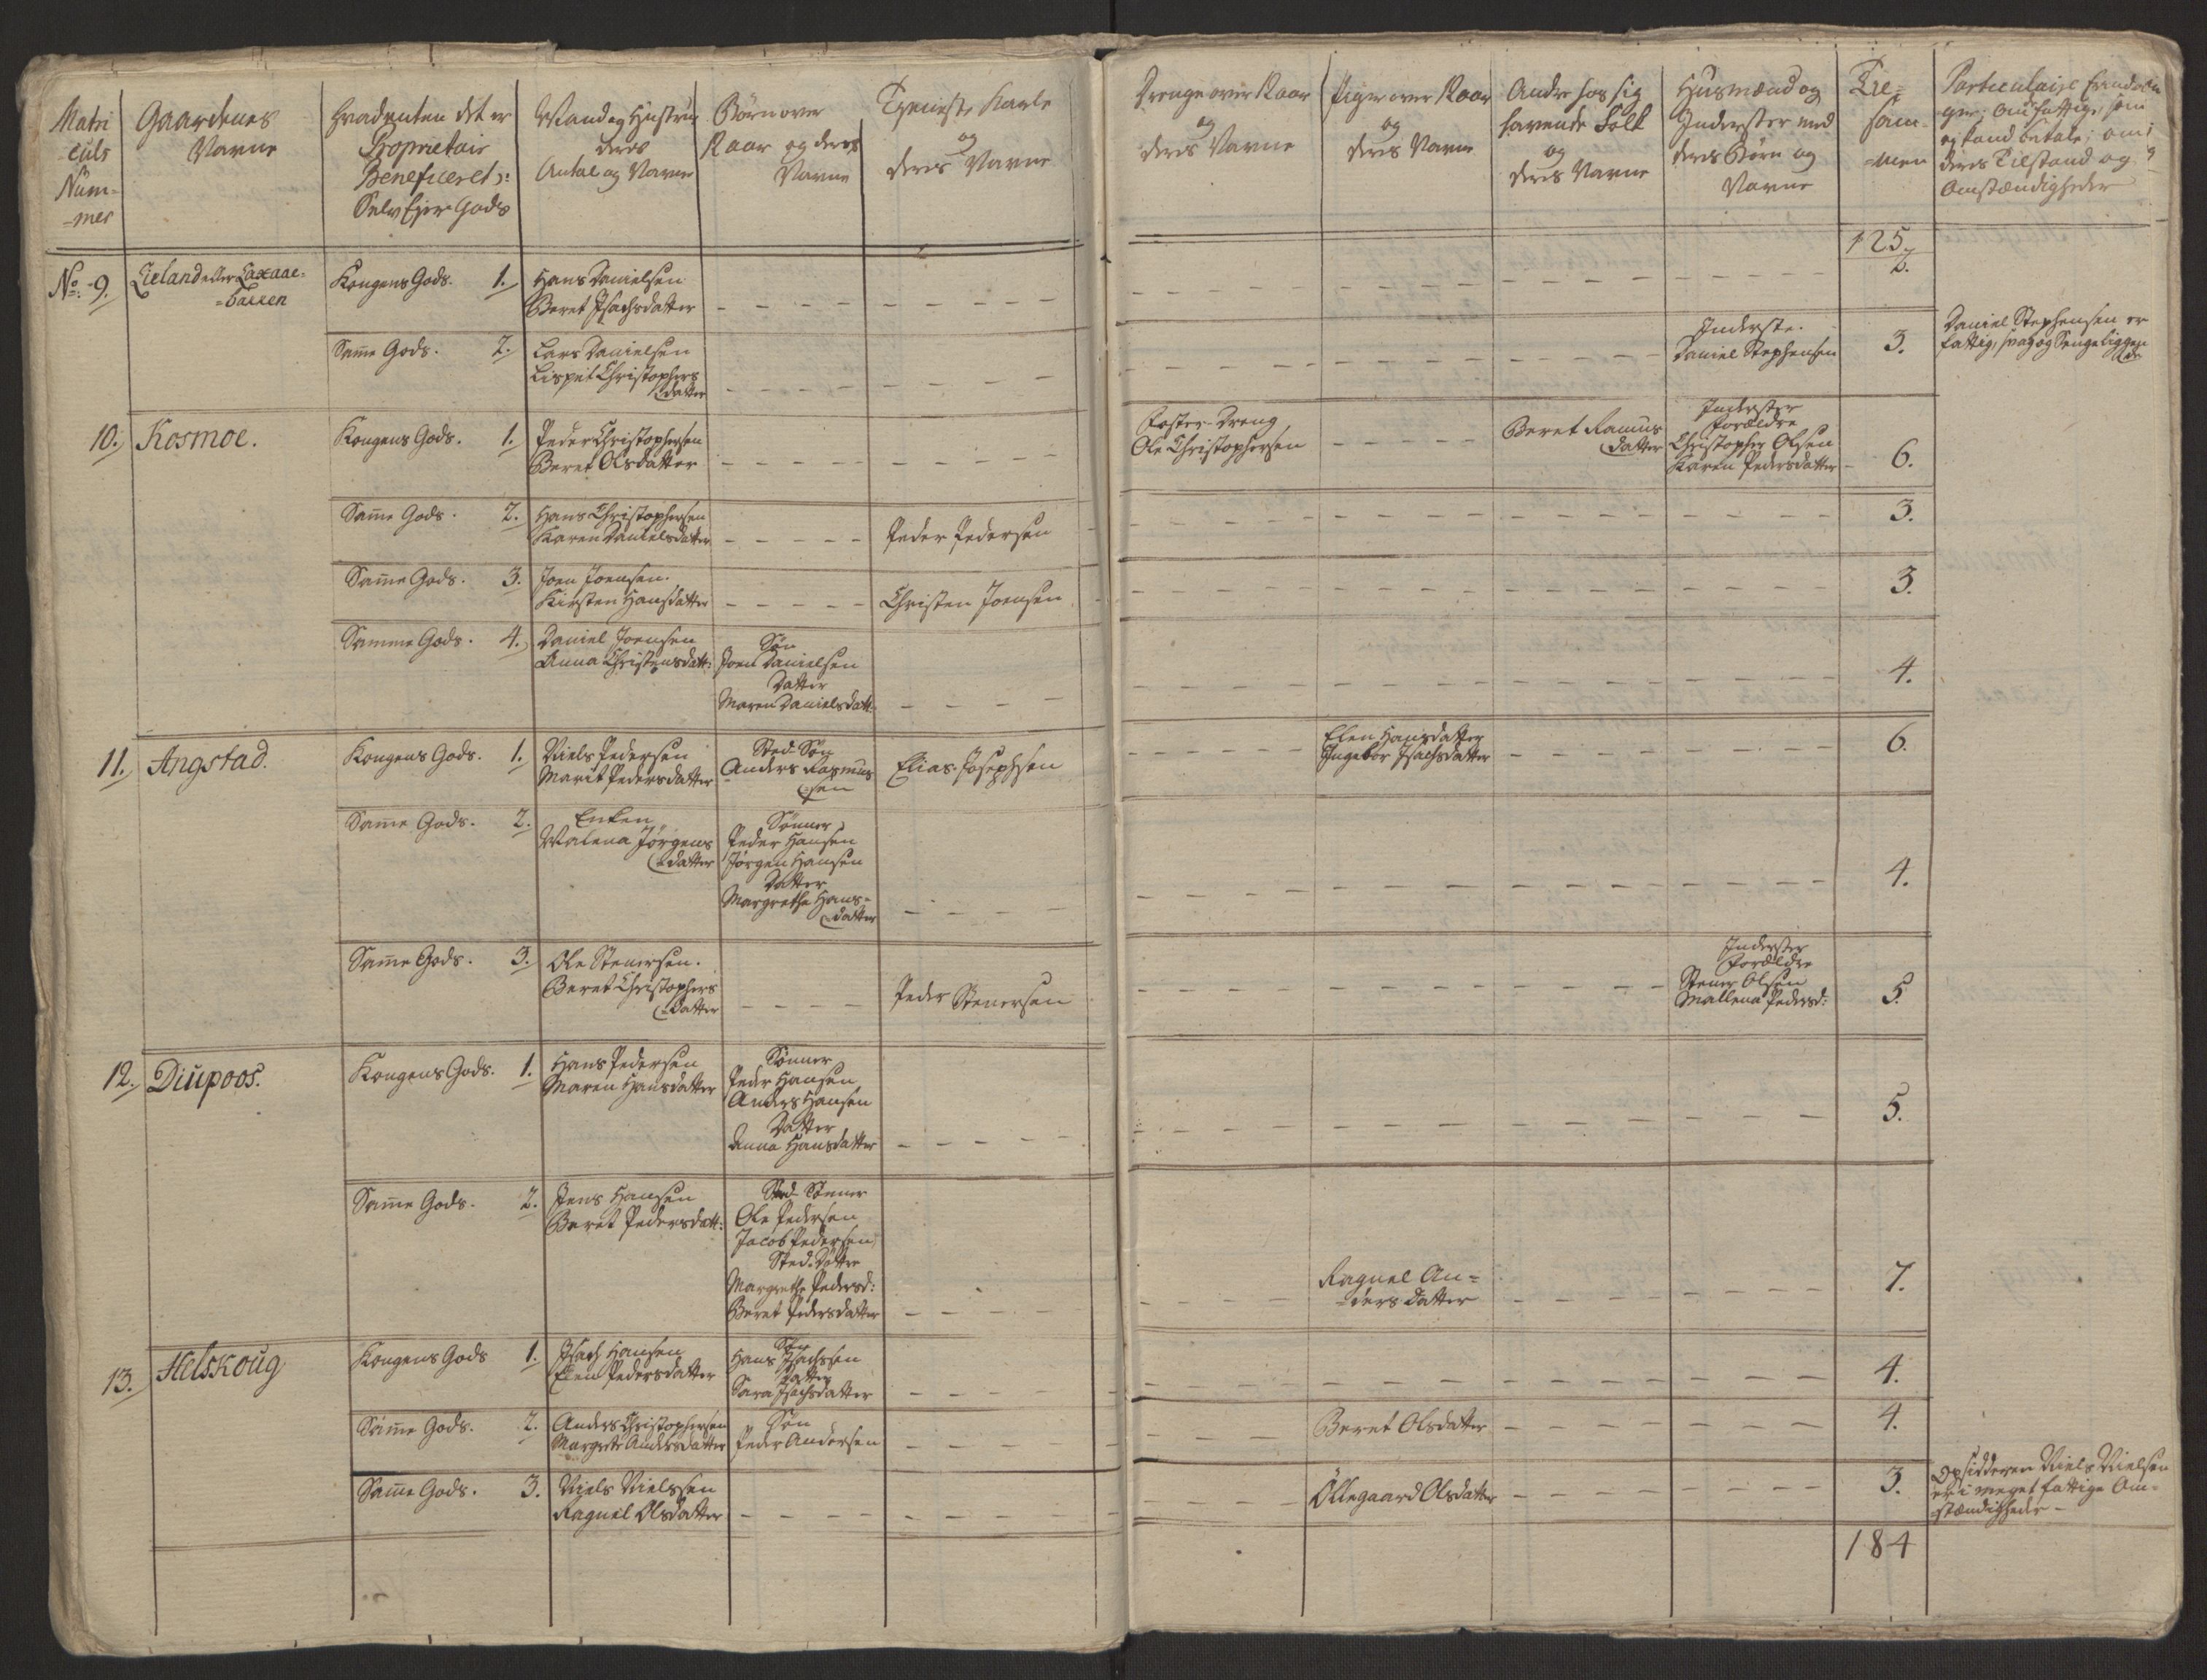 Matri
culs
Num-
-mer
Gaardenes
Navne
hvadenten det er
Proprietair
Beneficeret ɔ:
Selv Ejer Gods
Mand og Hustru
deres
Antal og Navne
Børn over
Aar og deres
Navne
Tjeneste Karle
og
deres Navne
Drenge over Aar
og
deres Navne
Piger over Aar
og
deres Navne
Andre hos sig
havende Folk
og
deres Navne
Husmænd og
Inderster med
deres Børn og
Navne
Til-
sam-
-men
deres Tilstand og
Omstændigheder
125.
No. 9.
Lieland eller Laxaae-
-backen
Kongens Gods. 1.
Hans Danielsen
Beret Isachsdatter
2.
Samme Gods. 2.
Lars Danielsen
Lispet Christophers
datter
Inderste.
Daniel Stephensen
3.
Daniel Stephensen er
fattig, svag og Sengeliggen
de
10.
Kosmoe.
Kongens Gods. 1.
Peder Christophersen
Beret Olsdatter
Foster-Dreng
Ole Christophersen
Beret Ramus
datter
Inderster
Forældre
Christopher Olsen
Karen Pedersdatter
6.
Samme Gods. 2.
Hans Christophersen
Karen Danielsdatter
Peder Pedersen
3.
Samme Gods. 3.
Joen Joensen.
Kirsten Hansdatter
Christen Joensen
3.
Samme Gods. 4.
Daniel Joensen
Anna Christensdatt:
Søn
Joen Danielsen
Datter
Maren Danielsdatt:
4.
11.
Angstad.
Kongens Gods. 1.
Niels Pedersen
Marit Pedersdatter
Sted-Søn
Anders Rasmus
sen
Elias Josephsen
Elen Hansdatter
Ingebor Isachsdatter
6.
Samme Gods. 2.
Enken
Malena Jørgens
datter
Sønner
Peder Hansen
Jørgen Hansen
Datter
Margrethe Hans-
datter
4.
Samme Gods. 3.
Ole Stenersen.
Beret Christophers
datter
Peder Stenersen
Inderster
Forældre
Stener Olsen
Mallena Pedersd:
5.
12.
Diupoos.
Kongens Gods. 1.
Hans Pedersen
Maren Hansdatter
Sønner
Peder Hansen
Anders Hansen
Datter
Anna Hansdatter
5.
Samme Gods. 2.
Jens Hansen
Beret Pedersdatt:
Sted-Sønner
Ole Pedersen
Jacob Pedersen
Sted-Døttre
Margrethe Pedersd:
Beret Pedersdatter
Ragnel An-
-dersdatter
7.
13.
Helskoug
Kongens Gods 1.
Isach Hansen
Elen Pedersdatter
Søn
Hans Isachsen
Datter
Sara Isachsdatter
4.
Samme Gods. 2.
Anders Christophersen
Margrete Andersdatter
Søn
Peder Andersen
Beret Olsdatter
4.
Samme Gods. 3.
Niels Nielssen
Ragnel Olsdatter
Ollegaard Olsdatter
3.
Opsidderen Niels Nielsen
er i meget fattige Om-
-stændigheder -
184